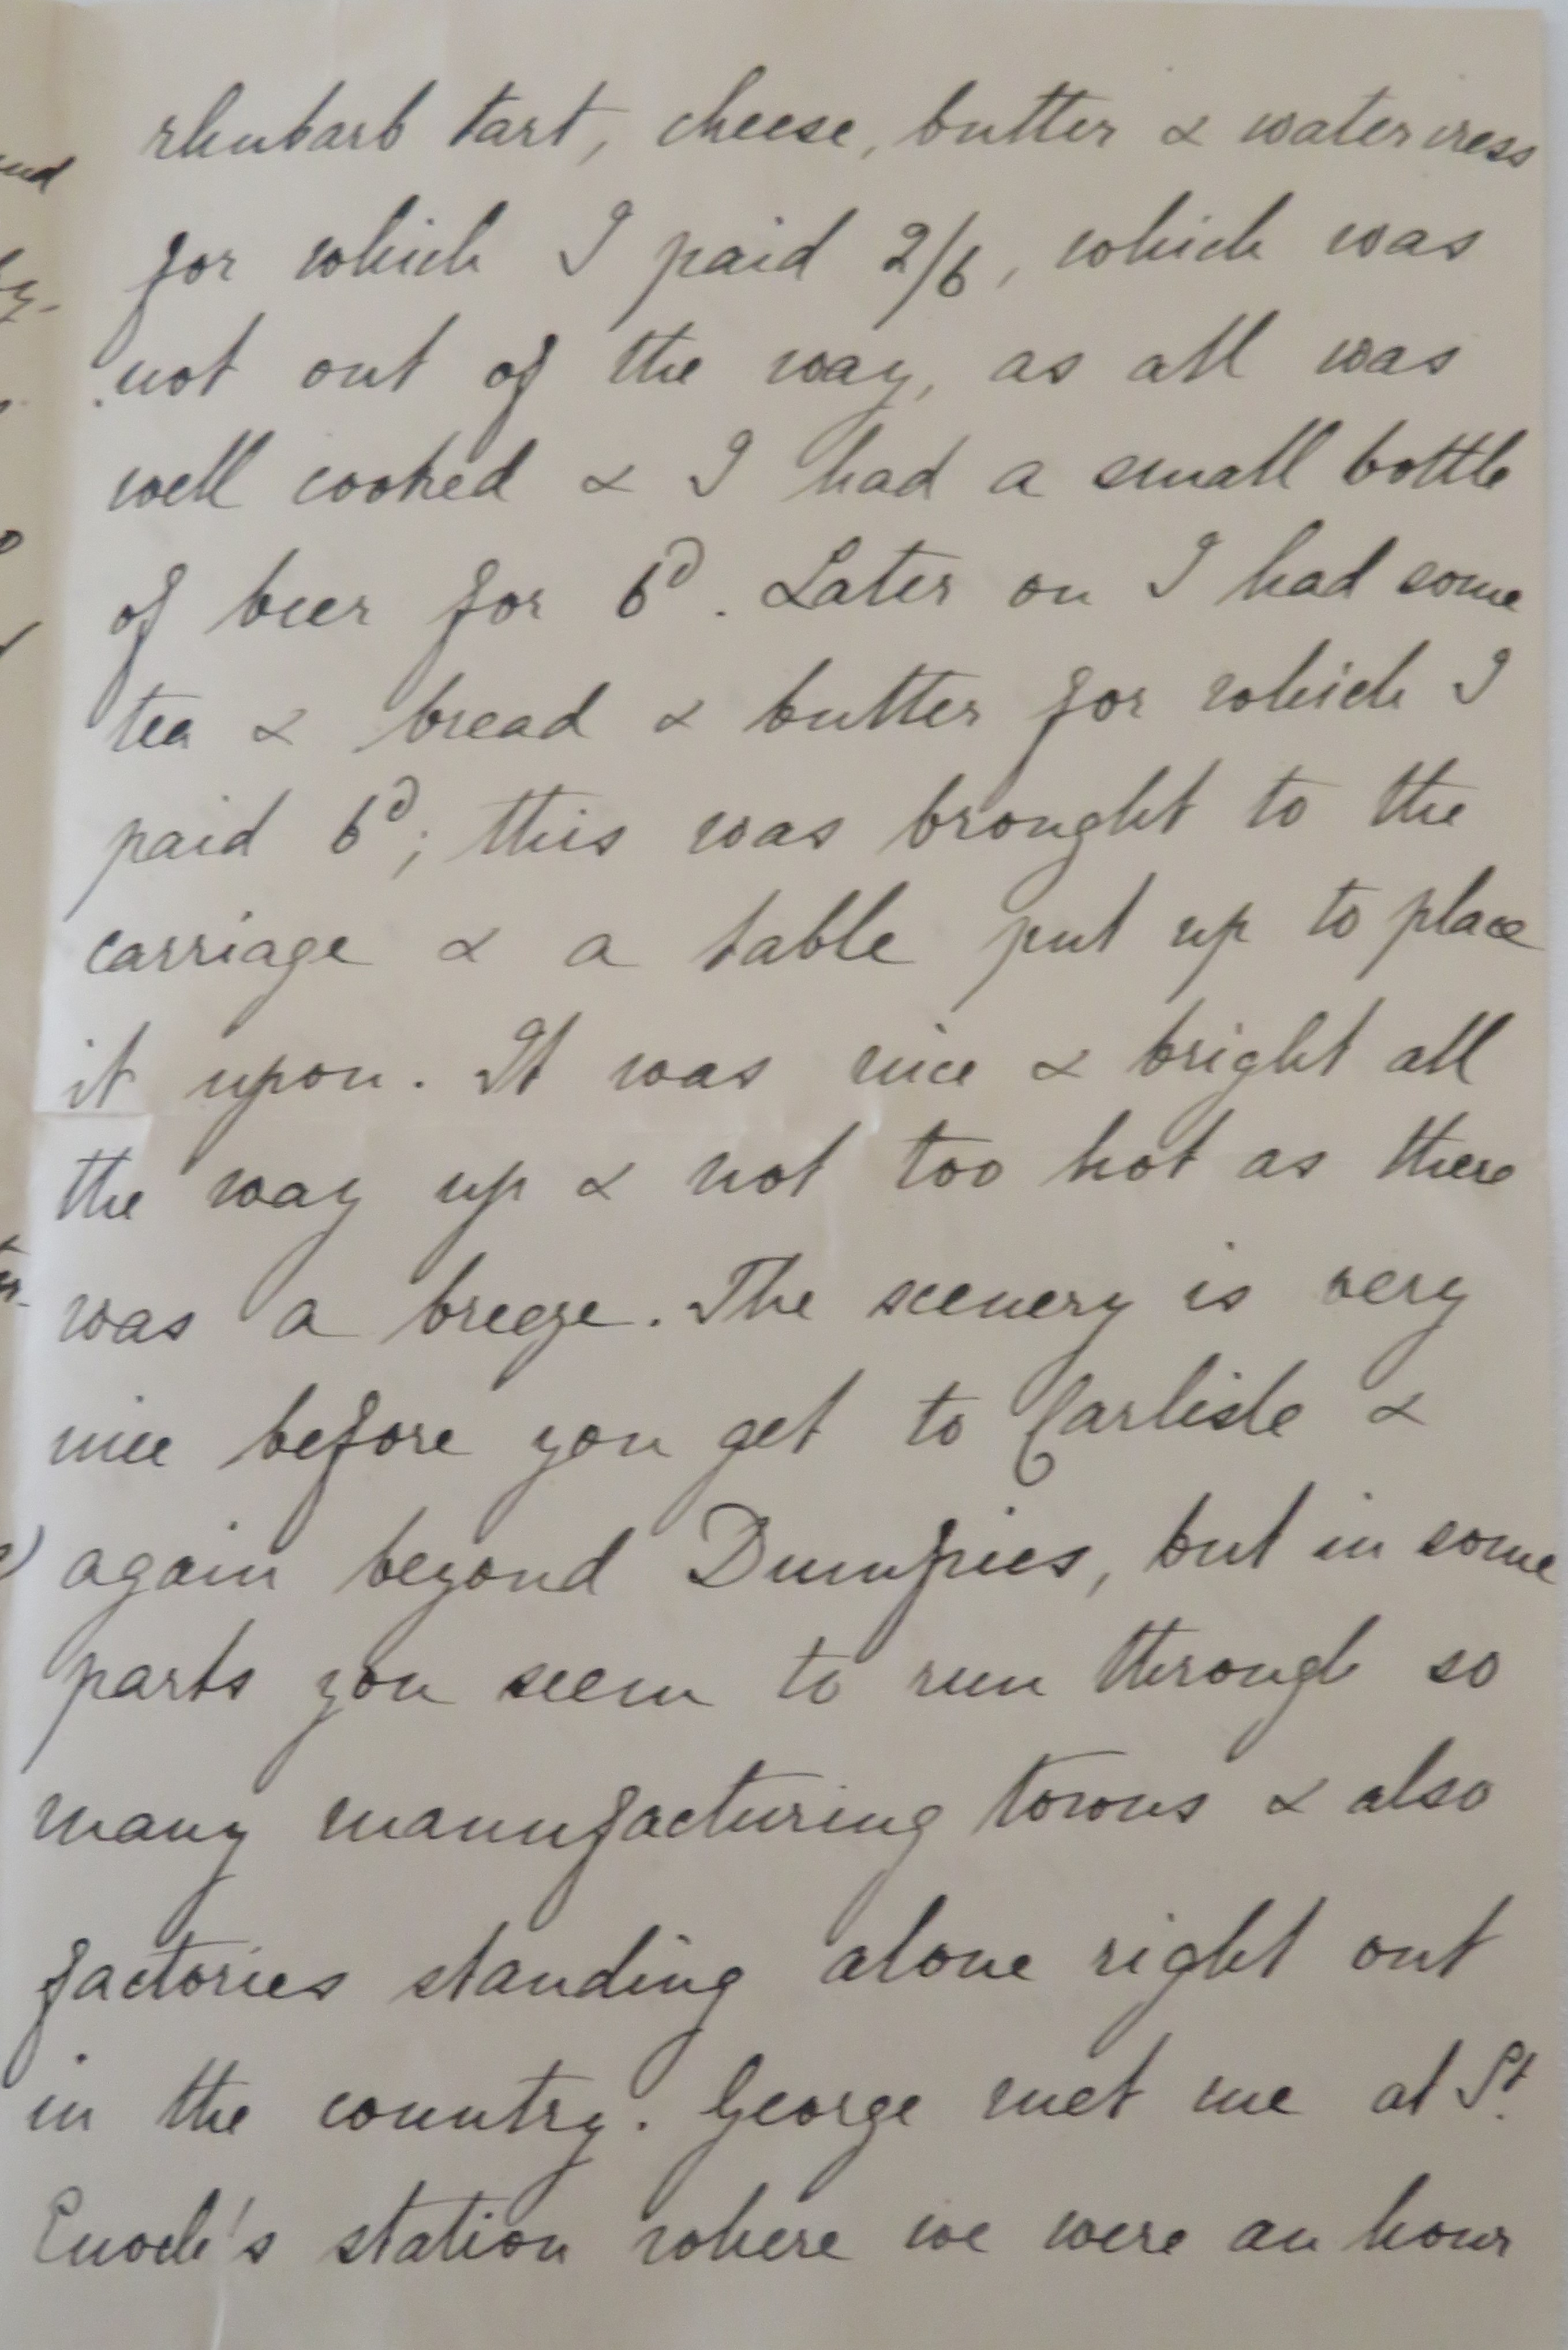 rhubarb tart, cheese, butter & water cress
for which I paid 2/6, which was
not out of the way, as all was
well cooked & I had a small bottle
of beer for 6d. Later on I had some
tea & bread & butter for which I
paid 6d; this was brought to the
carriage & a table put up to place
it upon. It was nice & bright all
the way up & not too hot as there
was a breeze. The scenery is very
nice before you get to Carlisle &
again beyond Dumfries, but in some
parts you seem to run through so
many manufacturing towns & also
factories standing alone right out
in the country. George met me at St.
Enoch's station where we were an hour